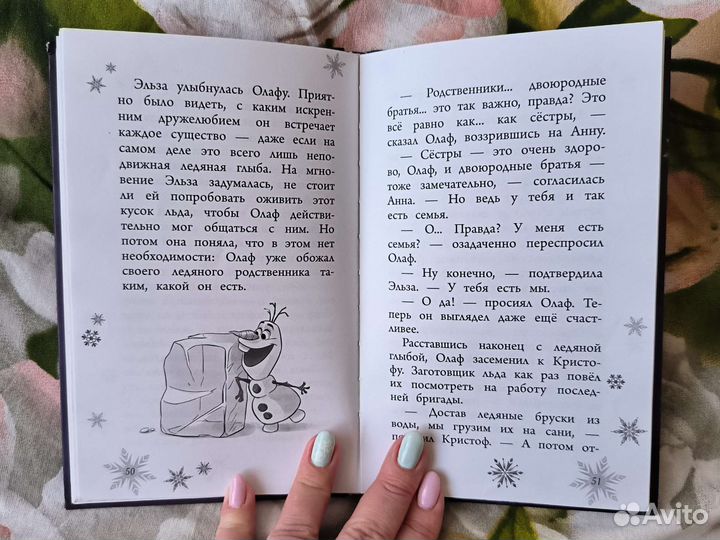 Эльза улыбнулась Олафу. Прият-
но было видеть, с каким искрен-
ним дружелюбием он встречает
каждое существо — даже если на
самом деле это всего лишь непо-
движная ледяная глыба. На мгно-
вение Эльза задумалась, не стоит
ли ей попробовать оживить этот
кусок льда, чтобы Олаф действи-
тельно мог общаться с ним. Но
потом она поняла, что в этом нет
необходимости: Олаф уже обожал
своего ледяного родственника та-
ким, какой он есть.
50
— Родственники... двоюродные
братья... это так важно, правда? Это
всё равно как... как сёстры, —
сказал Олаф, воззрившись на Анну.
— Сёстры — это очень здоро-
во, Олаф, и двоюродные братья —
тоже замечательно, — согласилась
Анна. — Но ведь у тебя и так
есть семья.
— О... Правда? У меня есть
семья? — озадаченно переспросил
Олаф.
— Ну конечно, — подтвердила
Эльза. — У тебя есть мы.
— О да! — просиял Олаф. Те-
перь он выглядел даже ещё счаст-
ливее.
Расставшись наконец с ледяной
глыбой, Олаф засеменил к Кристо-
фу. Заготовщик льда как раз повёл
их посмотреть на работу послед-
ней бригады.
— Достав ледяные бруски из
воды, мы грузим их на сани, —
Кристоф. — А потом от-
51
Avito